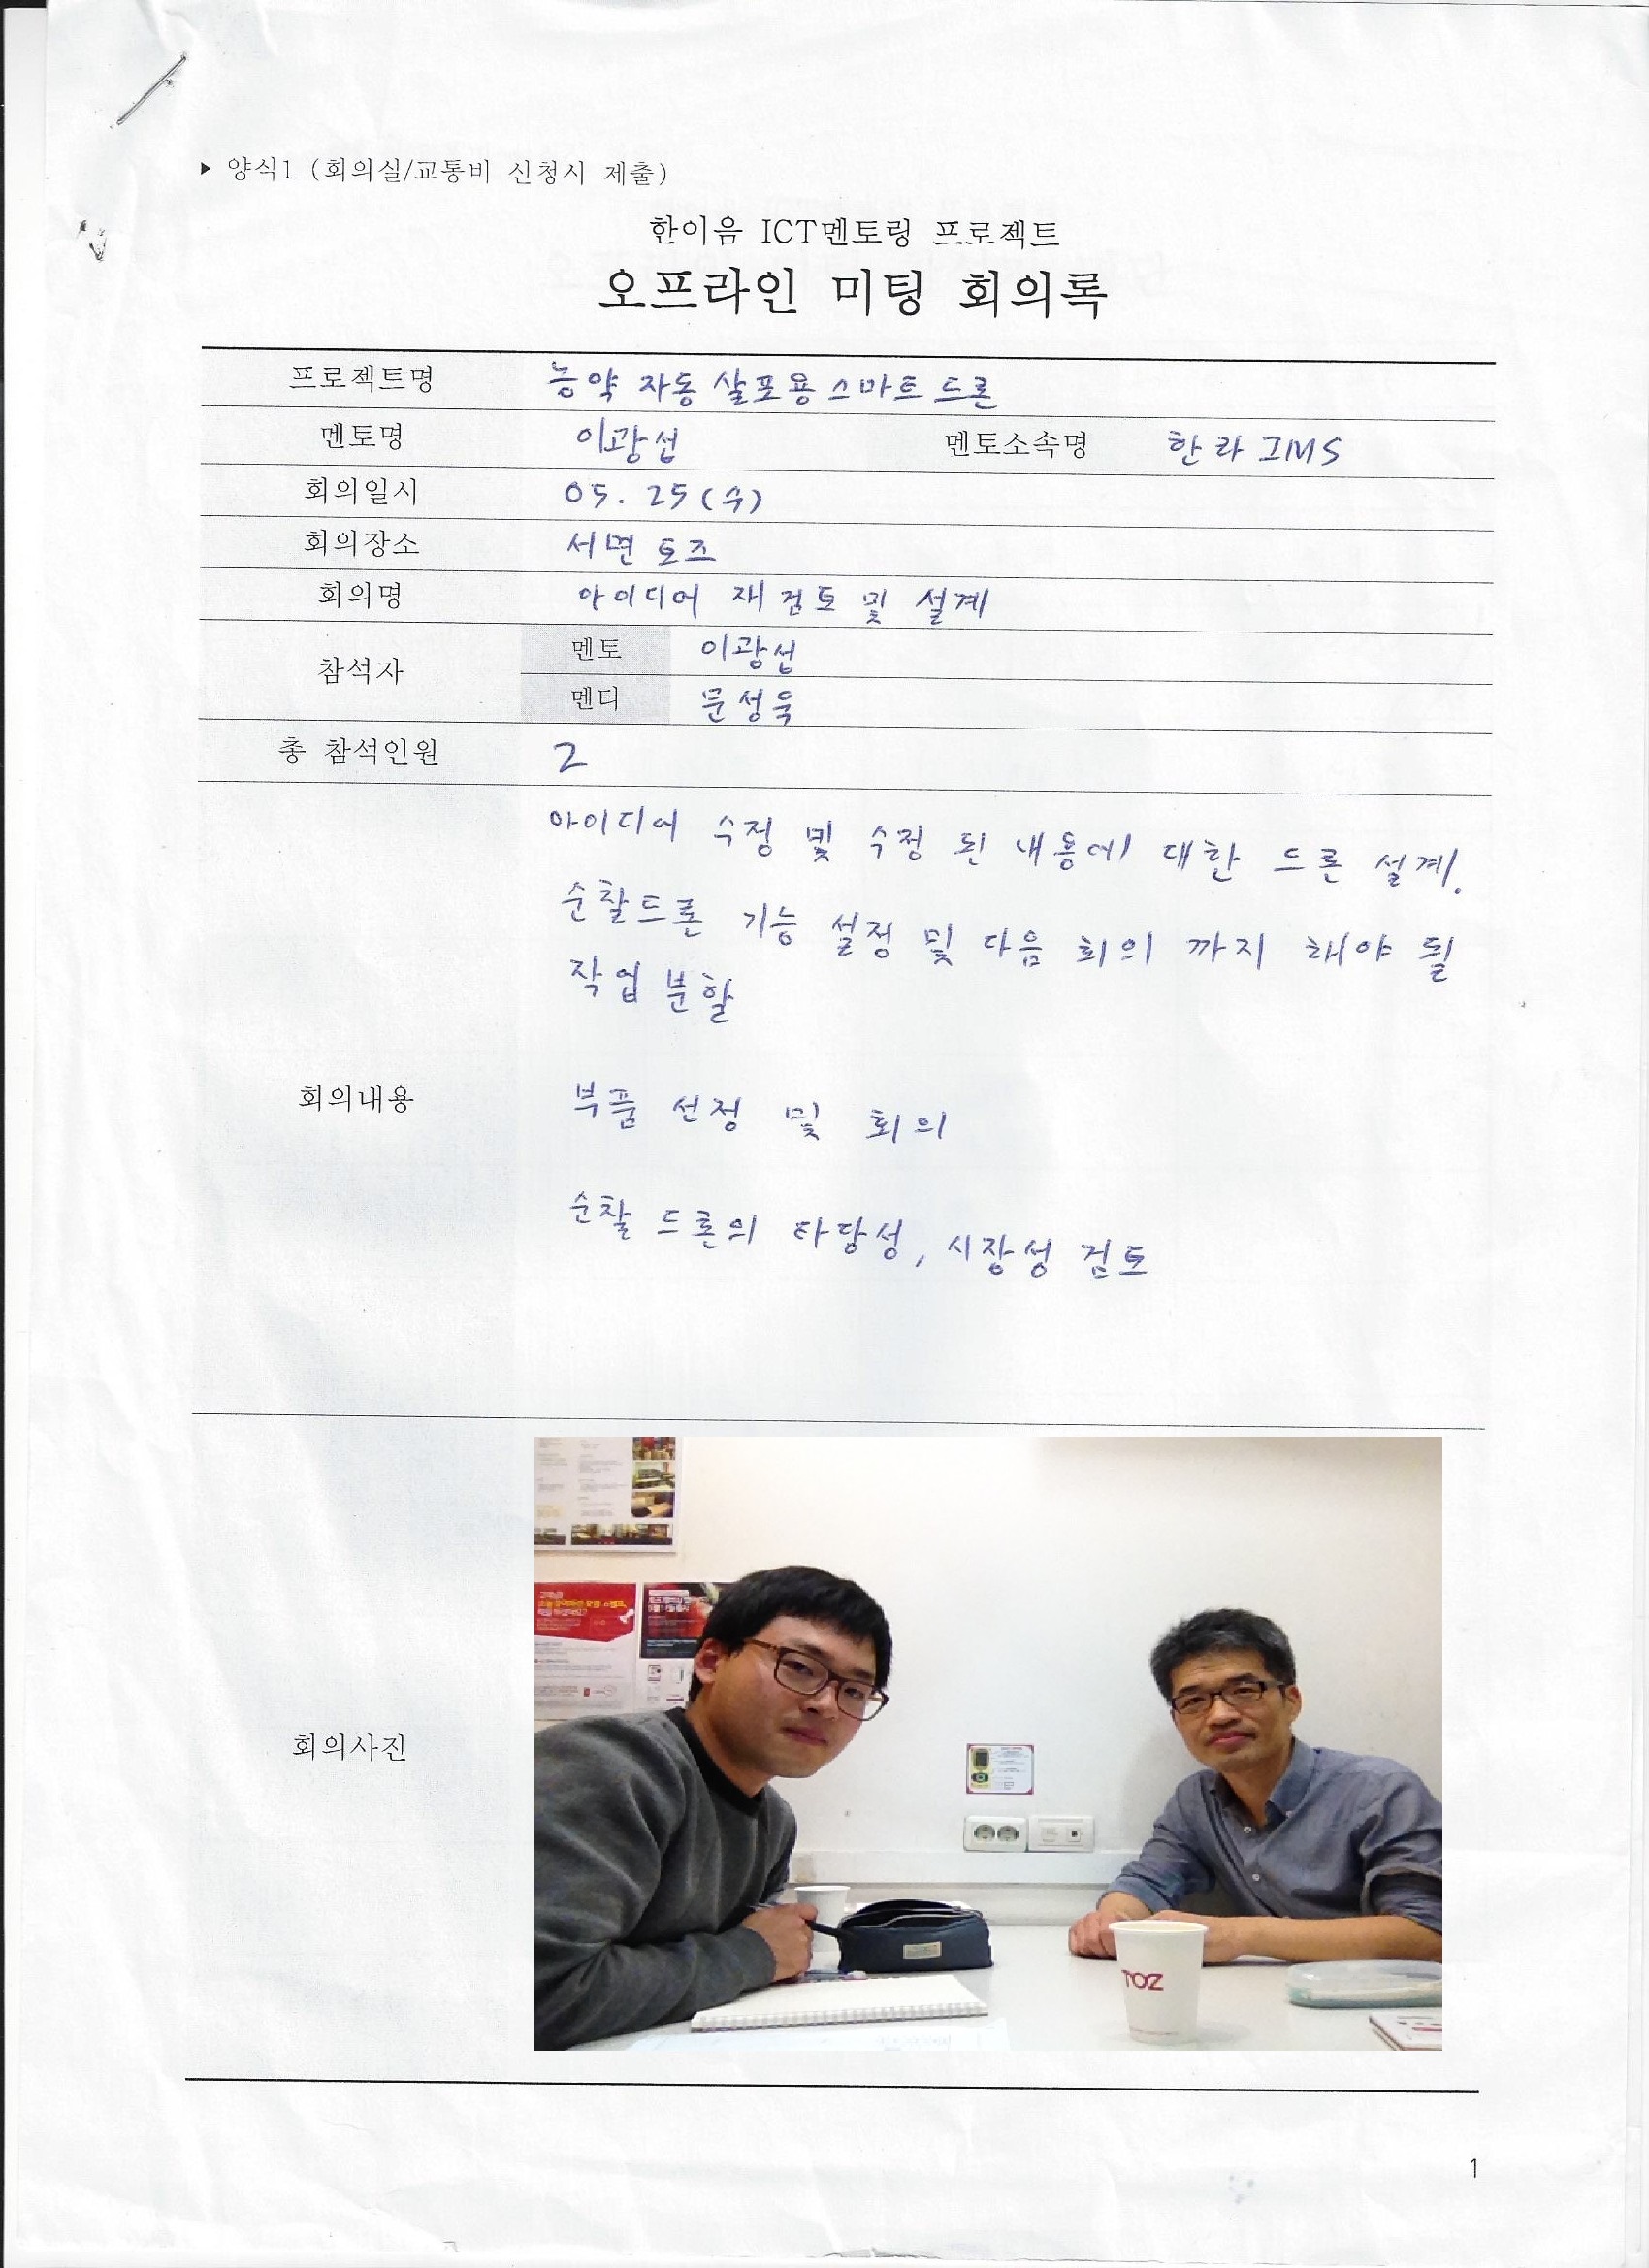 ▶ 양식1 (회의실/교통비 신청시 제출)
한이음 ICT멘토링 프로젝트
오프라인 미팅 회의록
프로젝트명 농약 자동 살포용 스마트 드론
멘토명 이광섭 멘토소속명 한라 IMS
회의일시 05. 25 (수)
회의장소 서면 토즈
회의명 아이디어 재검토 및 설계
참석자 멘토 이광섭
멘티 문성욱
총 참석인원 2
회의내용
아이디어 수정 및 수정 된 내용에 대한 드론 설계.
순찰드론 기능 설정 및 다음 회의 까지 해야 될
작업 분할
부품 선정 및 회의
순찰 드론의 타당성, 시장성 검토
회의사진
TOZ
1